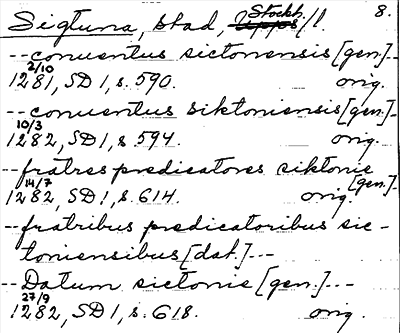 Sigtuna, stad, Stockh. l. 8.
--conventus sictonensis [gen.]--
2/10
1281, SD 1, s. 590. orig.
--conventus siktoniensis [gen.]--
10/3
1282, SD 1, s. 594. orig.
--fratres predicatores siktonie [gen.]
14/7
1282, SD 1, s. 614. orig.
--fratribus predicatoribus sic-
toniensibus [dat.]---
--Datum sictonie [gen.]---
27/9
1282, SD 1, s. 618. orig.